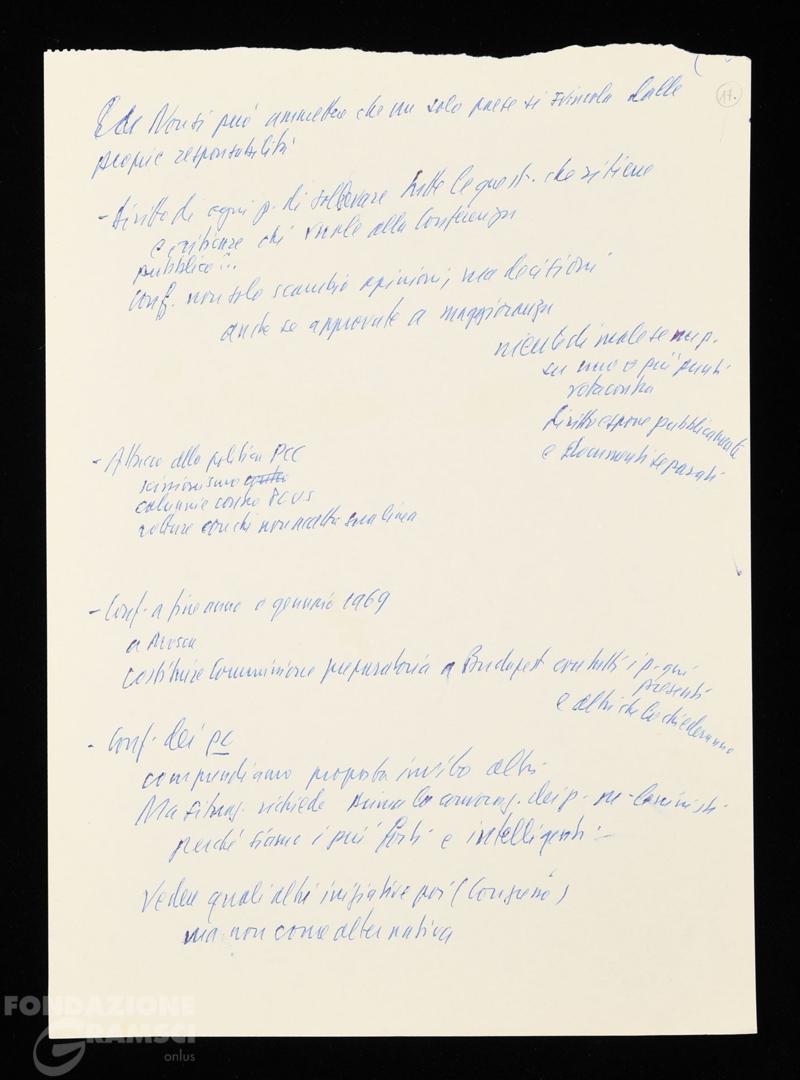 17.
Non si può ammettere che un solo paese si svincola dalle
proprie responsabilità
- diritto di ogni p. di sollevare tutte le quest. che ritiene
e criticare chi vuole alla Conferenza
pubblico...
Conf. non solo scambio opinioni, ma decisioni
anche se approvate a maggioranza
niente di male se un p.
su uno o più punti
vota contro
diritto espone pubblicamente
e documenti separati
- Attacco alla politica PCC
scissionismo
calunnie contro PCUS
rotture con chi non accetta sua linea
- Conf. a fine anno o gennaio 1969
a Mosca
costituire Commissione preparatoria a Budapest con tutti i p. qui
presenti
e altri che lo chiederanno
- Conf. dei pc
comprendiamo proposta invito altri
Ma situaz. richiede prima la convocaz. dei p. m-leninisti
perché siamo i più forti e intelligenti
Vedere quali altri iniziative poi (Congresso)
ma non come alternativa
FONDAZIONE
GRAMSCI
onlus